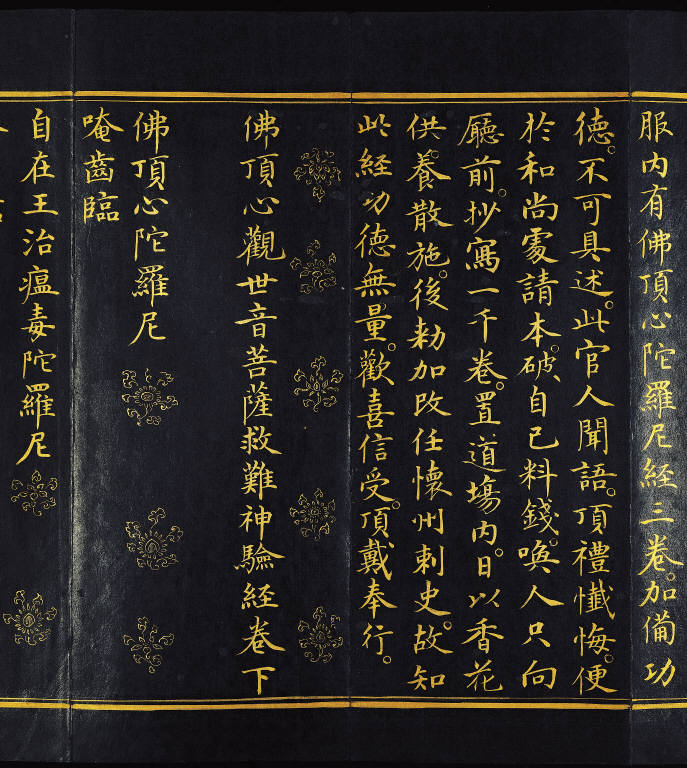 服内有佛頂心陀羅尼經三卷。加備功
德。不可具述。此官人聞語。頂禮懺悔。便
於和尚處請本。破自己料錢。喚人只向
廳前。抄寫一千卷。置道場内。日以香花
供養。散施。後勑加改任懷州刺史。故知
此經功德無量。歡喜信受。頂戴奉行。
佛頂心觀世音菩薩救難神驗經卷下
佛頂心陀羅尼
唵齒臨
自在王治瘟毒陀羅尼